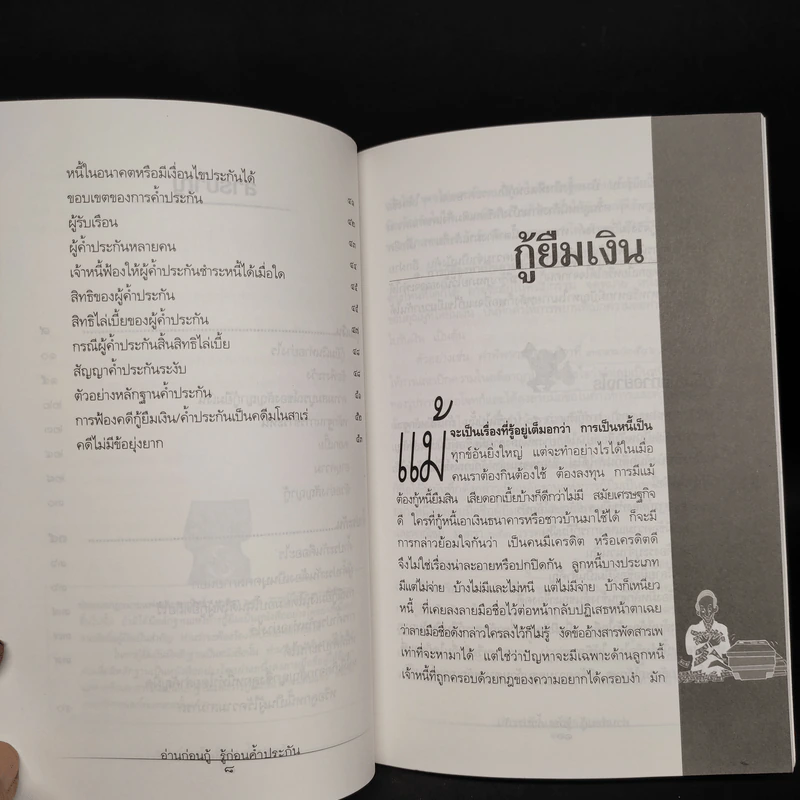 หนี้ในอนาคตหรือมีเงื่อนไขประกันได้
ขอบเขตของการค้ำประกัน
ผู้รับเรือน
ผู้ค้ำประกันหลายคน
เจ้าหนี้ฟ้องให้ผู้ค้ำประกันชำระหนี้ได้เมื่อใด
สิทธิของผู้ค้ำประกัน
สิทธิไล่เบี้ยของผู้ค้ำประกัน
กรณีผู้ค้ำประกันสิ้นสิทธิไล่เบี้ย
สัญญาค้ำประกันระงับ
ตัวอย่างหลักฐานค้ำประกัน
การฟ้องคดีกู้ยืมเงิน/ค้ำประกันเป็นคดีมโนสาเร่
คดีไม่มีข้อยุ่งยาก
อ่านก่อนกู้ รู้ก่อนค้ำประกัน
๘
กู้ยืมเงิน
แม้จะเป็นเรื่องที่รู้อยู่เต็มอกว่า การเป็นหนี้เป็น
ทุกข์อันยิ่งใหญ่ แต่จะทำอย่างไรได้ในเมื่อ
คนเราต้องกินต้องใช้ ต้องลงทุน การมีแม้
ต้องกู้หนี้ยืมสิน เสียดอกเบี้ยบ้างก็ดีกว่าไม่มี สมัยเศรษฐกิจ
ดี ใครที่กู้หนี้เอาเงินธนาคารหรือชาวบ้านมาใช้ได้ ก็จะมี
การกล่าวย้อมใจกันว่า เป็นคนมีเครดิต หรือเครดิตดี
จึงไม่ใช่เรื่องน่าละอายหรือปกปิดกัน ลูกหนี้บางประเภท
มีแต่ไม่จ่าย บ้างไม่มีและไม่หนี แต่ไม่มีจ่าย บ้างก็เหนียว
หนี้ ที่เคยลงลายมือชื่อไว้ต่อหน้ากลับปฏิเสธหน้าตาเฉย
ว่าลายมือชื่อดังกล่าวใครลงไว้ก็ไม่รู้ งัดข้ออ้างสารพัดสารเพ
เท่าที่จะหามาได้ แต่ใช่ว่าปัญหาจะมีเฉพาะด้านลูกหนี้
เจ้าหนี้ที่ถูกครอบด้วยกฎของความอยากได้ครอบงำ มัก